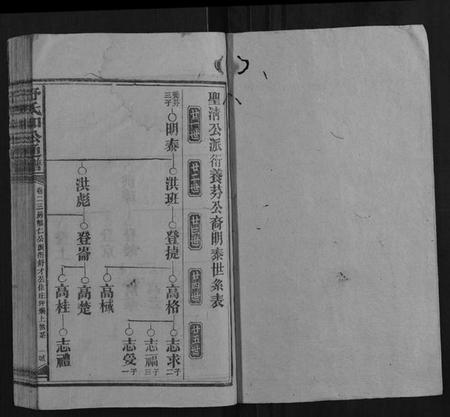 聖清公派衍養芬公裔明泰世系表
廿一世
廿二世
廿三世
廿四世
廿五世
養芬
三子
明泰
洪班
洪彪
登捷
登崙
高格
高棫
高楚
高桂
志求
二子
志福
三子
志爱
一子
志禮